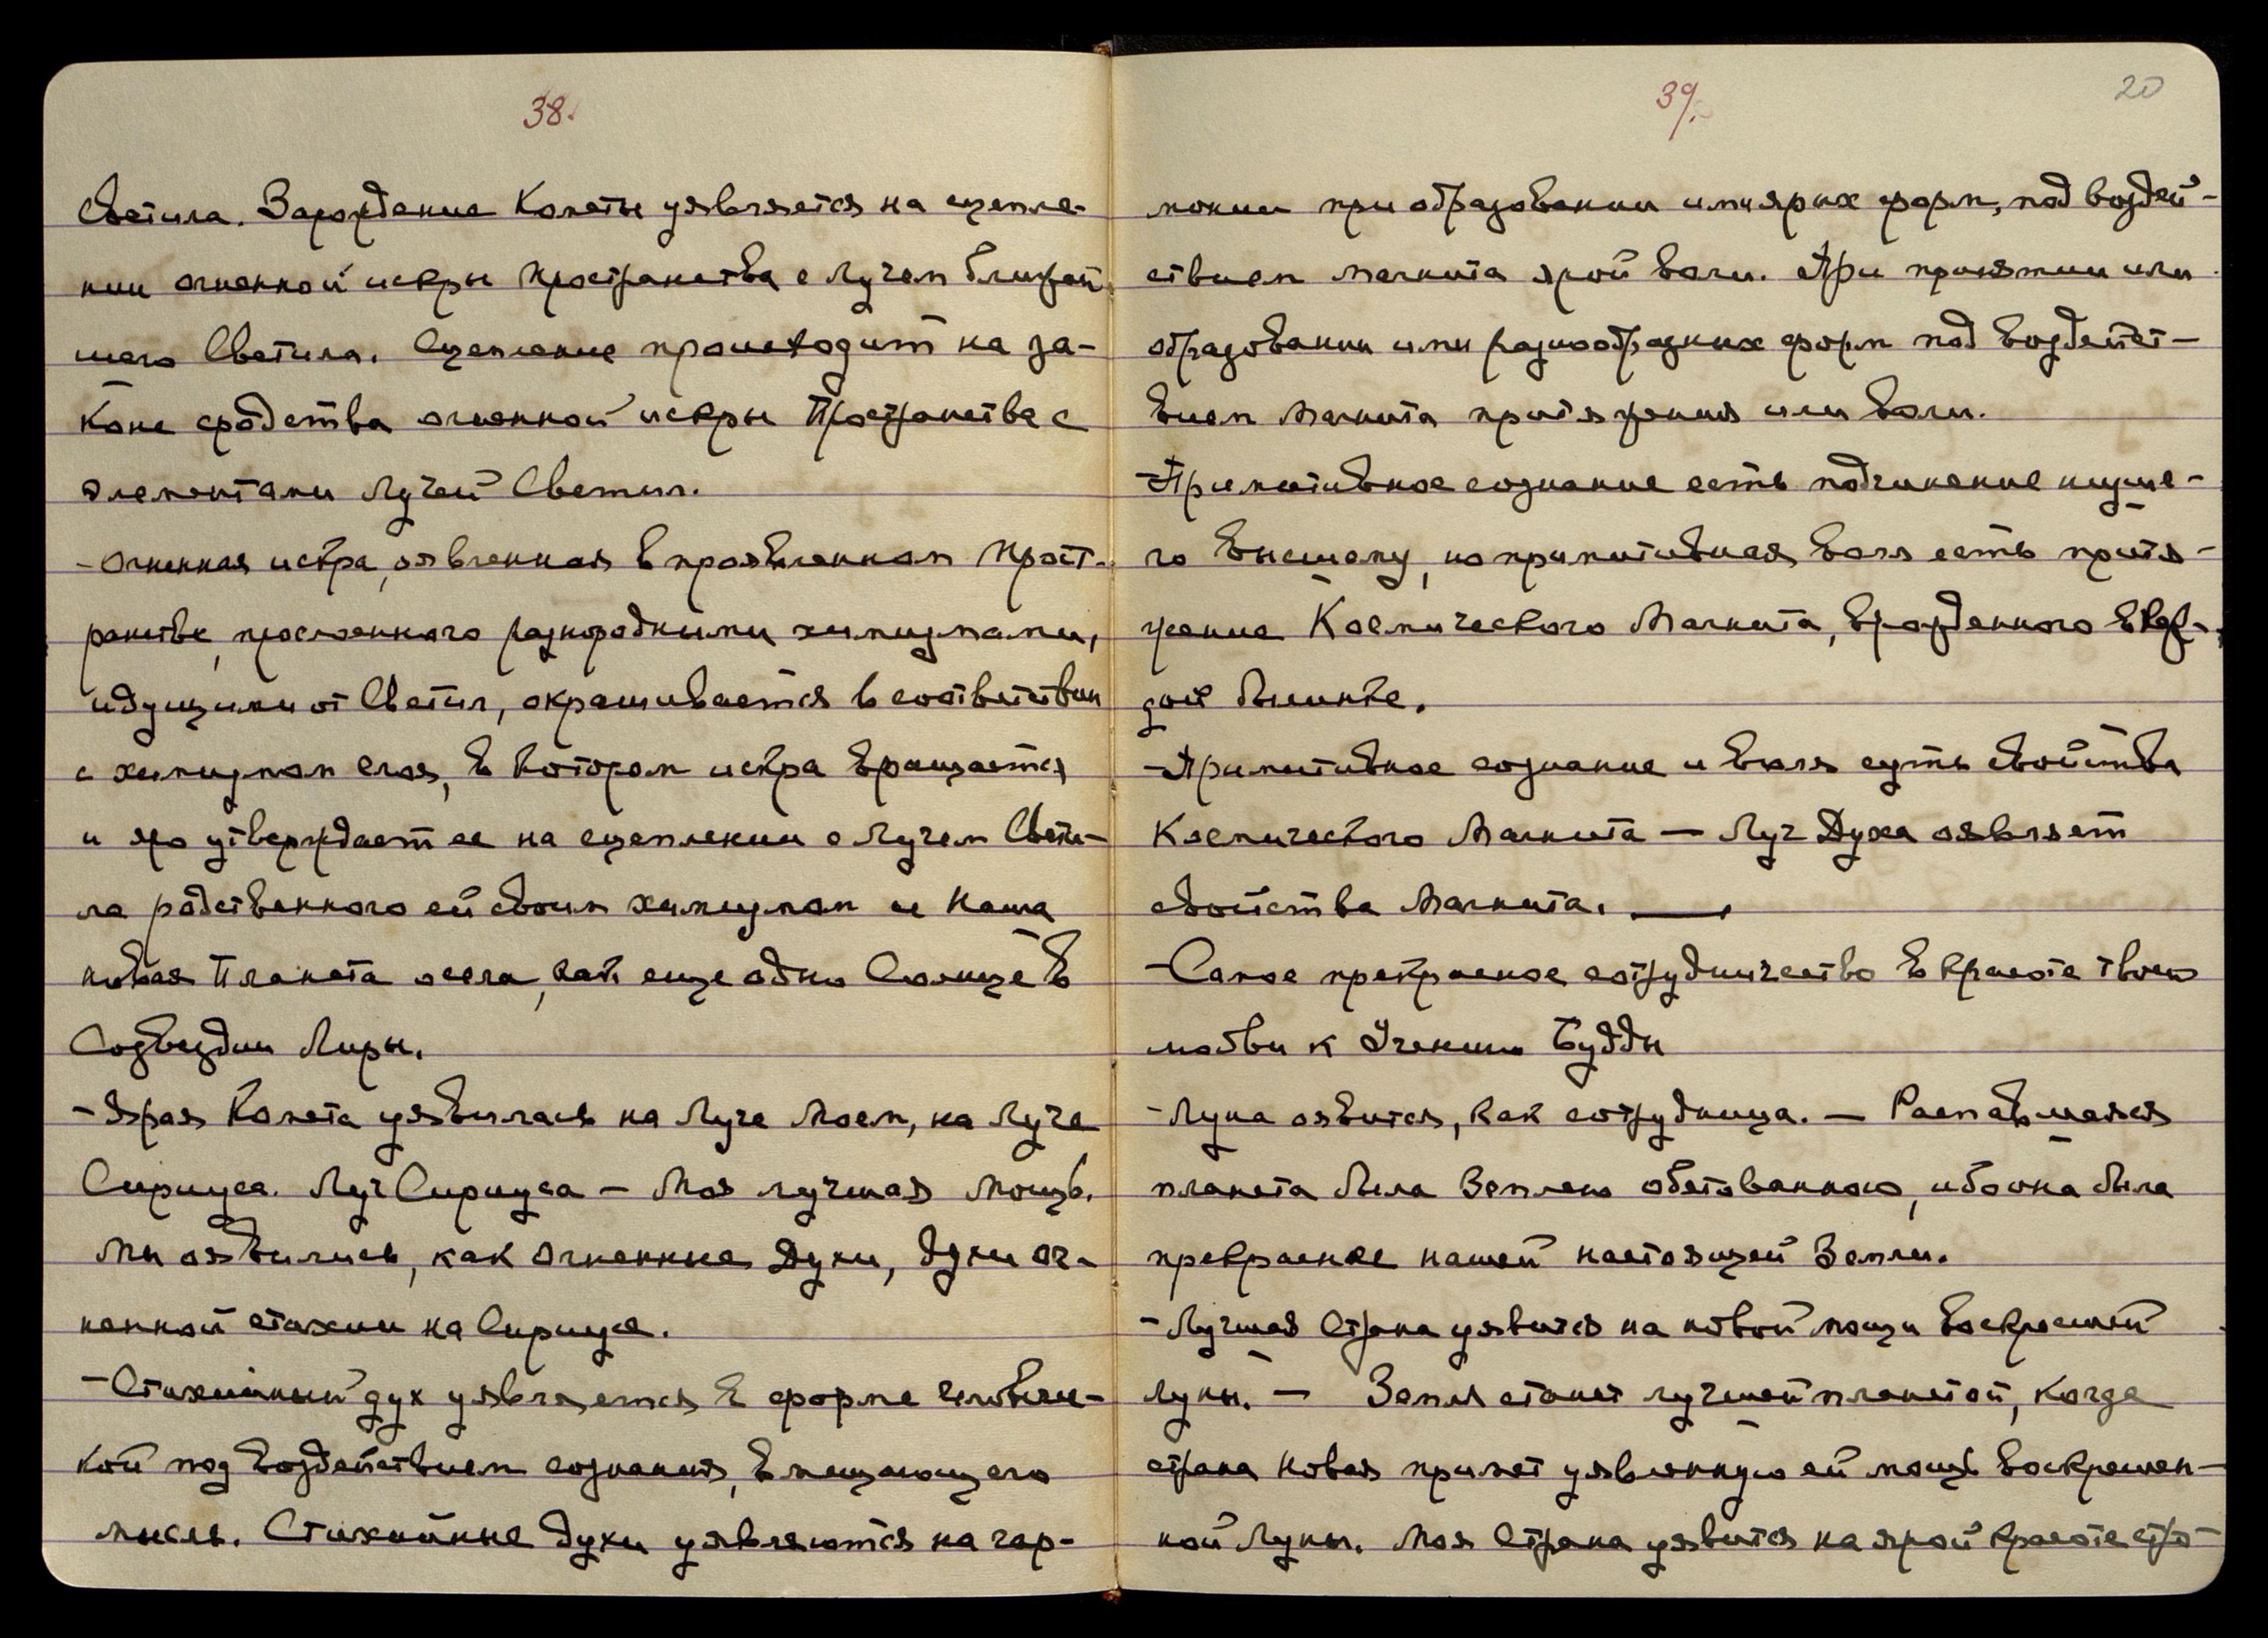 38.
Светила. Зарождение Кометы уявляется на сцепле-
нии огненной искры Пространства с Лучом ближай-
шего Светила. Сцепление происходит на за-
коне сродства огненной искры Пространства с
элементами Лучей Светил.
- Огненная искра, явленная в проявленном Прост-
ранстве, прослоенного разнородными химизмами,
идущими от Светил, окрашивается в соответствии
с химизмом слоя, в котором искра вращается
и яро утверждает ее на сцеплении с Лучем Свети-
ла родственного ей своим химизмом и Наша
новая Планета осела, как еще одно Солнце в
Созвездии Лиры.
- Ярая Комета уявилась на Луче Моем, на Луче
Сириуса. Луч Сириуса — Моя лучшая Мощь.
Мы оявились, как Огненные Духи, духи ог-
ненной стихии на Сириусе.
- Стихийный дух уявляется в форме человечес-
кой под воздействием сознания, вмещающего
мысль. Стихийные духи уявляются на гар-
39.
20
монии при образовании ими ярых форм, под воздей-
ствием магнита ярой воли. При принятии или
образовании ими разнообразных форм под воздейст-
вием Магнита притяжения или воли.
- Примитивное сознание есть подчинение низше-
го высшему, но примитивная воля есть притя-
жение Космического Магнита, врожденного в каж-
дой былинке.
- Примитивное сознание и воля суть свойства
Космического Магнита — Луч Духа оявляет
свойства Магнита. —
- Самое прекрасное сотрудничество в красоте твоей
любви к Учению Будды
- Луна оявится, как сотрудница. — Распавшаяся
планета была Землею обетованною, ибо она была
прекраснее нашей настоящей Земли.
- Лучшая Страна уявится на новой мощи воскресшей
Луны. — Земля станет лучшей планетой, когда
страна Новая примет уявленную ей мощь воскрешен-
ной Луны. Моя Страна уявится на ярой красоте стро-